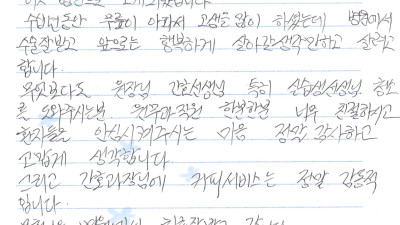 수년동안 무릎이 아파서 고생을 많이 하셨는데 병원에서
수술잘받고 앞으로는 행복하게 살아갈생각만하고 살려고
합니다.
무엇보다도 원장님 간호선생님 특히 실습생선생님
도와주시는분. 원무과직원 한분한분 너무 친절하시고
환자들을 안심시켜주시는 마음 정말 감사하고
고맙게 생각합니다.
그리고 간호과장님에 커피서비스는 정말 감동적
입니다.